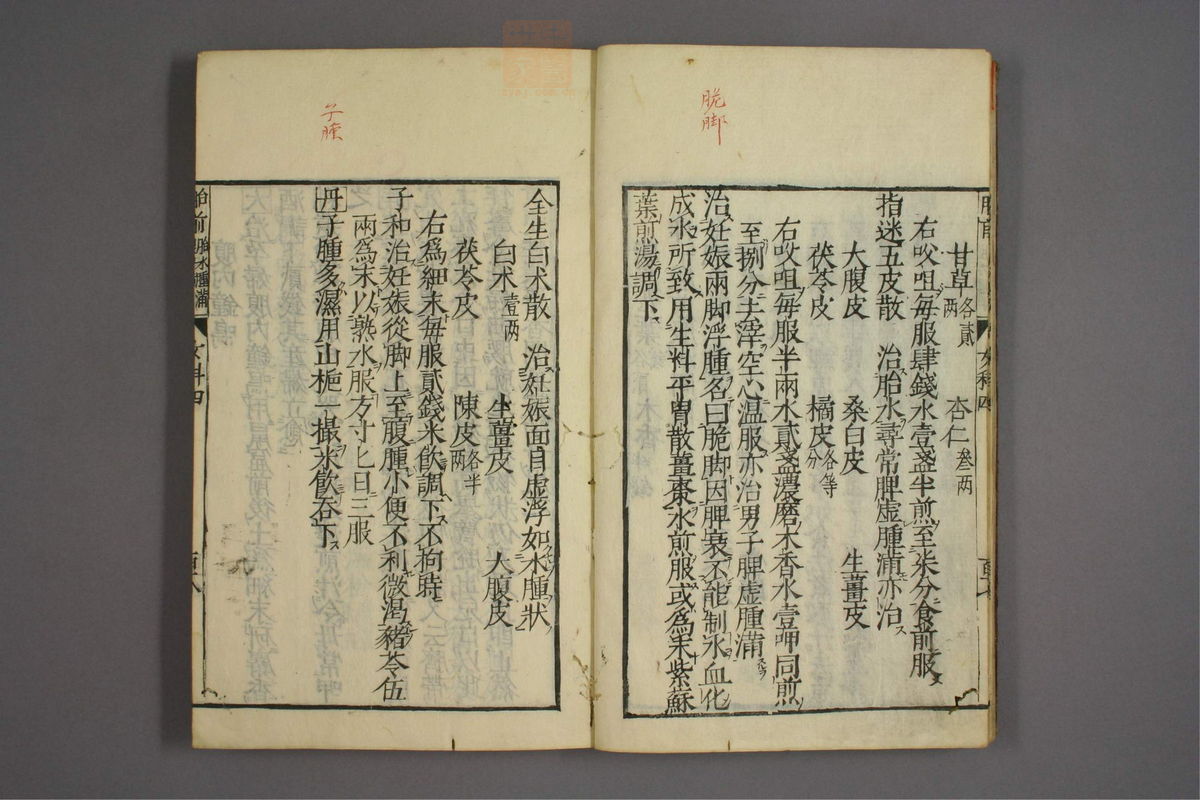 脆脚
甘草各貳兩　杏仁叁兩
右㕮咀每服肆錢水壹盞半煎至柒分食前服
指迷五皮散　治胎水尋常脾虛腫滿亦治
大腹皮　桑白皮　生薑皮
茯苓皮　橘皮各等分
右㕮咀每服半兩水貳盞濃磨木香水壹呷同煎
至捌分去滓空心温服亦治男子脾虛腫滿
治妊娠兩脚浮腫名曰脆脚因脾衰不能制水血化
成水所致用生料平胃散薑棗水煎服或爲末紫蘇
葉煎湯調下
子腫
全生白朮散　治妊娠面目虛浮如水腫狀
白朮壹兩　生薑皮　大腹皮
茯苓皮　陳皮各半兩
右爲細末每服貳錢米飲調下不拘時
子和治妊娠從脚上至腹腫小便不利微渴豬苓伍
兩爲末以熟水服方寸匕日三服
丹子腫多濕用山梔一撮米飲吞下
胎前胎水腫滿
女科四